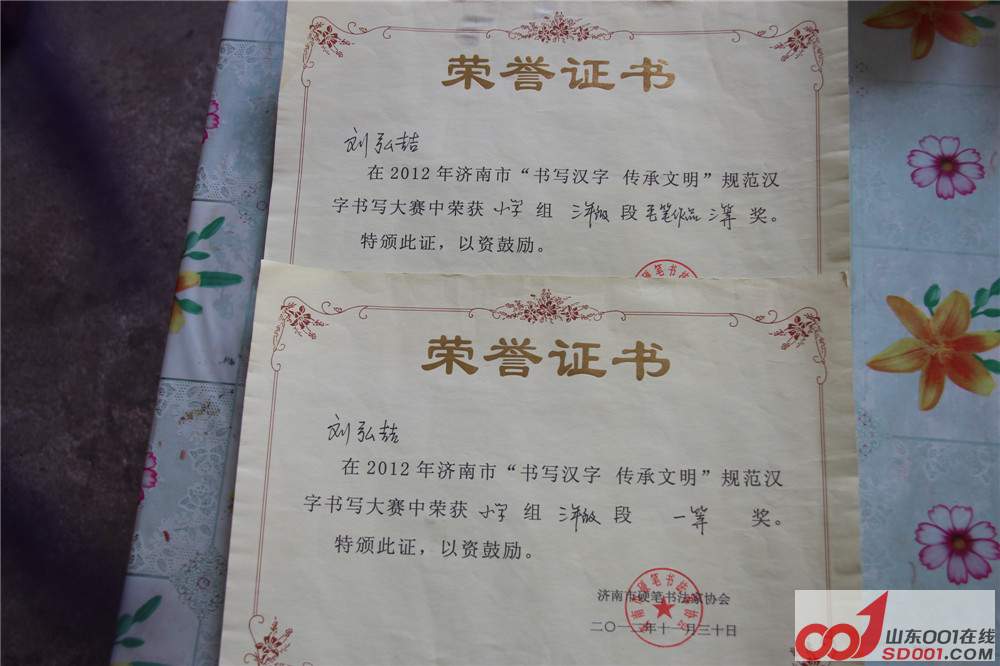 荣誉证书
刘弘喆
在2012年济南市“书写汉字 传承文明”规范汉
字书写大赛中荣获 小学 组 三年级 段 毛笔作品 三等 奖。
特颁此证，以资鼓励。
硬笔书法
荣誉证书
刘弘喆
在2012年济南市“书写汉字 传承文明”规范汉
字书写大赛中荣获 小学 组 三年级 段 一等 奖。
特颁此证，以资鼓励。
济南市硬笔书法家协会
二〇一二年十一月三十日
山东001在线
SD001.com